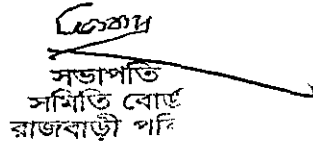 সভাপতি
সমিতি বোর্ড
রাজবাড়ী পবি